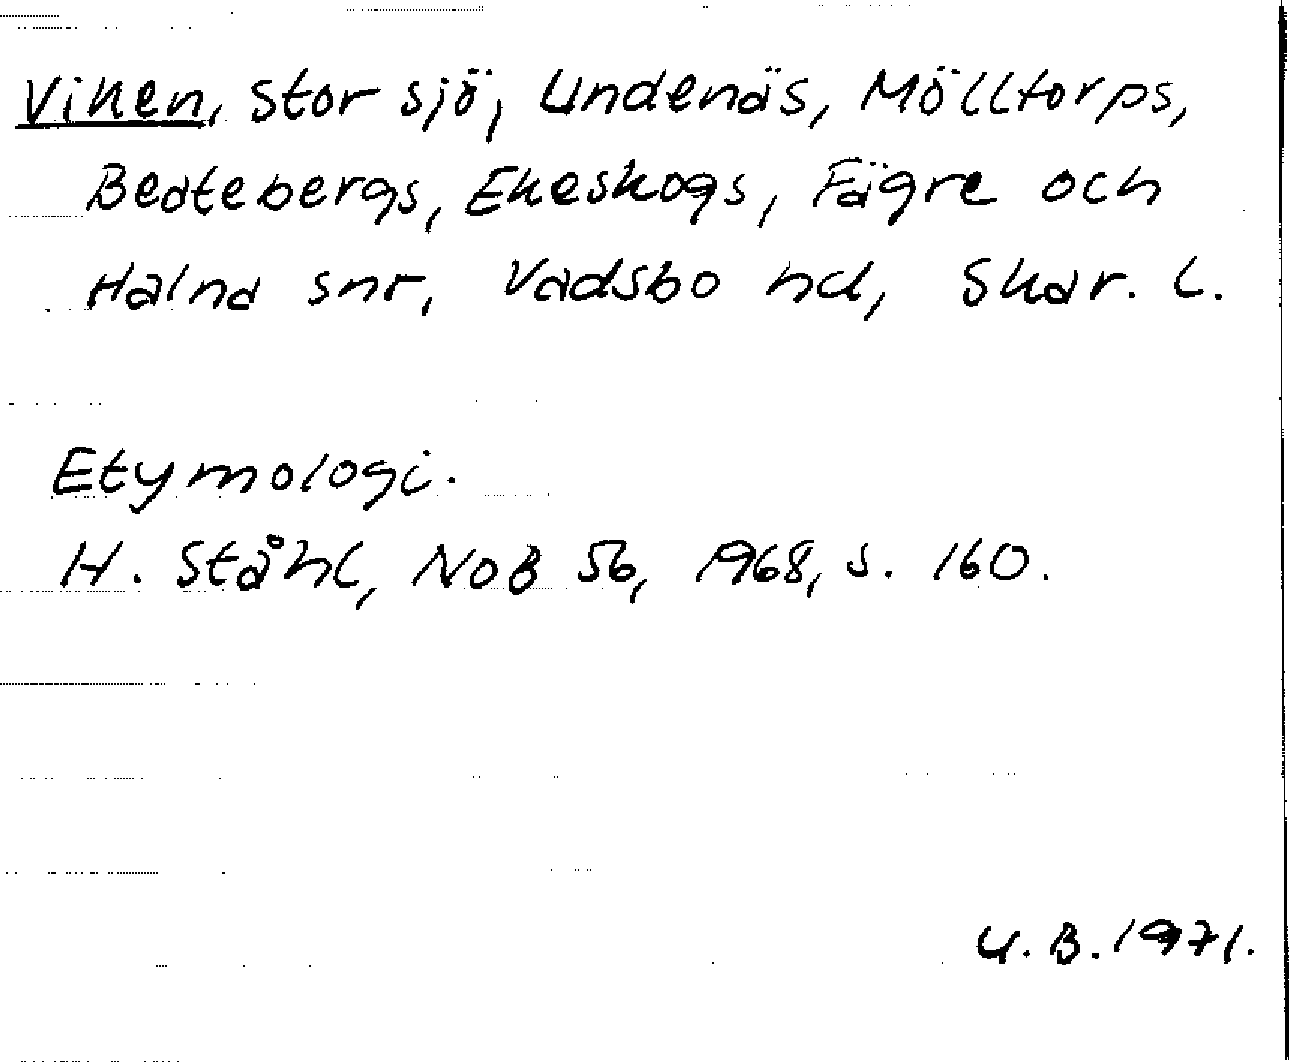 Viken, stor sjö, Undenäs, Mölltorps,
Beatebergs, Ekeskogs, Fägre och
Halna snr, Vadsbo hd, Skar. l.
Etymologi.
H. Ståhl, NoB 56, 1968, s. 160.
U.B. 1971.